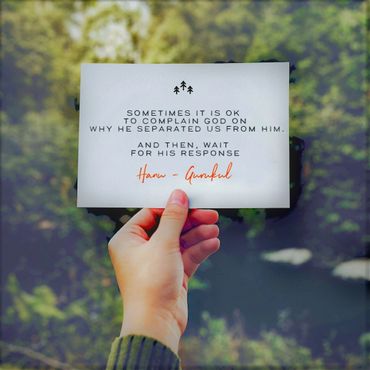 SOMETIMES IT IS OK
TO COMPLAIN GOD ON
WHY HE SEPARATED US FROM HIM.
AND THEN, WAIT
FOR HIS RESPONSE
Hanu - Gurukul